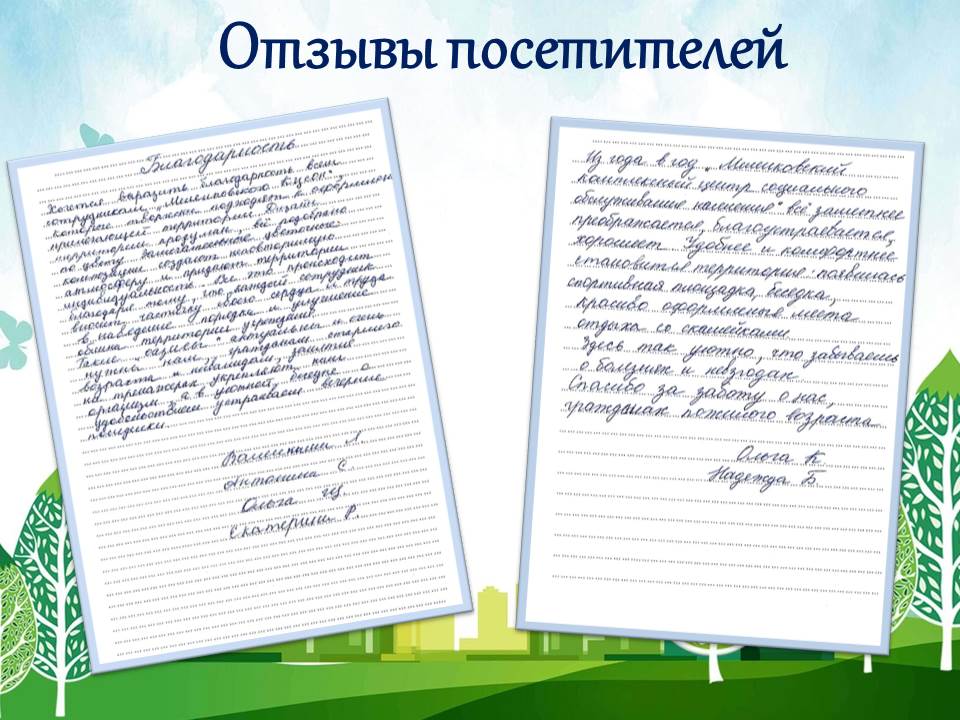 Отзывы посетителей
Благодарность
Хочется выразить благодарность всем
сотрудникам „Милиловского КЦСОН",
которые творчески подходят к оформлению
прилегающей территории. Дизайн
территории продуман, всё подобрано
по цвету. Замечательные цветочные
композиции создают неповторимую
атмосферу и придают территории
индивидуальность. Все это происходит
благодаря тому, что каждый сотрудник
вносит частичку своего сердца и труда
в наведение порядка и улучшение
облика территории учреждения.
Такие „оазисы" актуальны и очень
нужны нам, гражданам старшего
возраста и инвалидам, занятия
на тренажерах укрепляют наш
организм, а в уютной беседке с
удовольствием устраиваем вечерние
посиделки.
Валентина Л.
Антонина С.
Ольга
Екатерина Р.
Из года в год „
комплексный центр социального
обслуживания населения" всё заметнее
преображается, благоустраивается,
хорошеет. Удобнее и комфортнее
становится территория: появилась
спортивная площадка, беседка,
красиво оформленные места
отдыха со скамейками.
Здесь так уютно, что забываешь
о болезнях и невзгодах.
Спасибо за заботу о нас,
гражданах пожилого возраста.
Ольга К
Надежда Б.